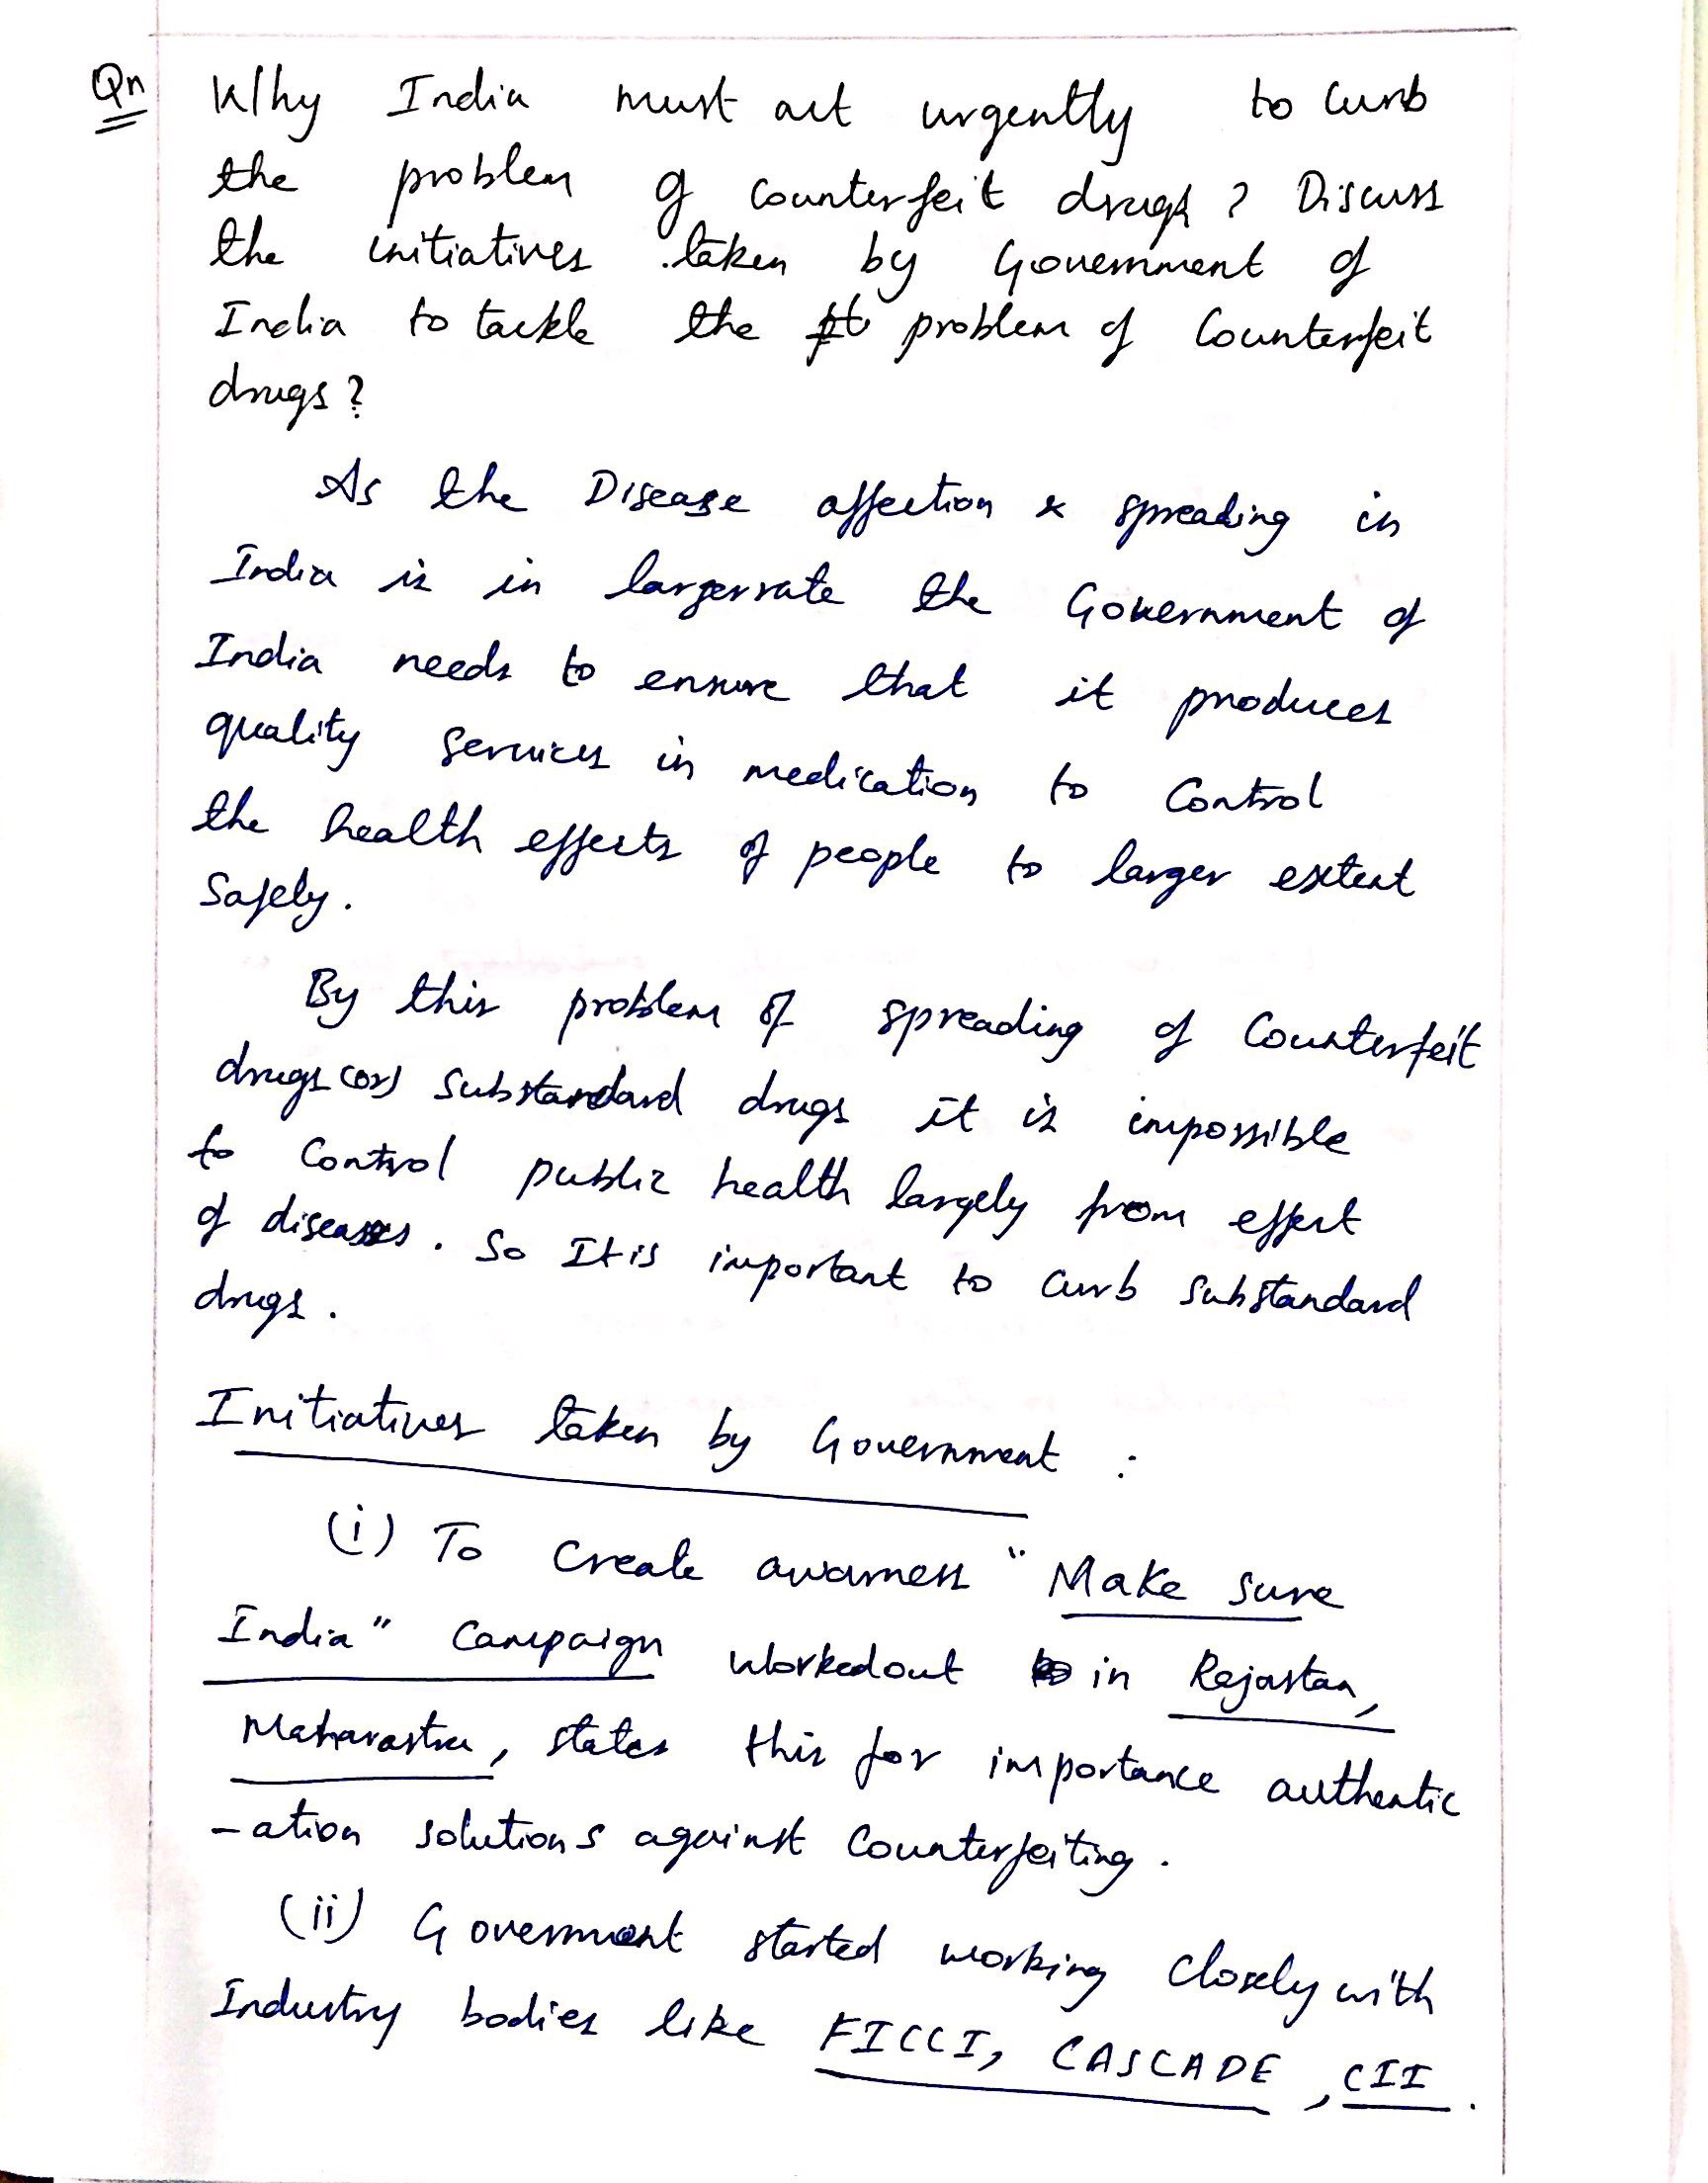 Qn Why India must act urgently to curb
the problem of counterfeit drugs? Discuss
the initiatives taken by Government of
India to tackle the problem of Counterfeit
drugs?
As the Disease affection & spreading in
India is in larger rate the Government of
India needs to ensure that it produces
quality services in medication to Control
the health effects of people to larger extent
Safely.
By this problem of spreading of Counterfeit
drugs (or) Substandard drugs it is impossible
to Control public health largely from effect
of diseases. So It is important to curb substandard
drugs.
Initiatives taken by Government :
(i) To Create awarness "Make Sure
India" Campaign workedout in Rajastan,
Maharastra, states this for importance authentic
-ation solutions against Counterfeiting.
(ii) Government started working closely with
Industry bodies like FICCI, CASCADE, CII.